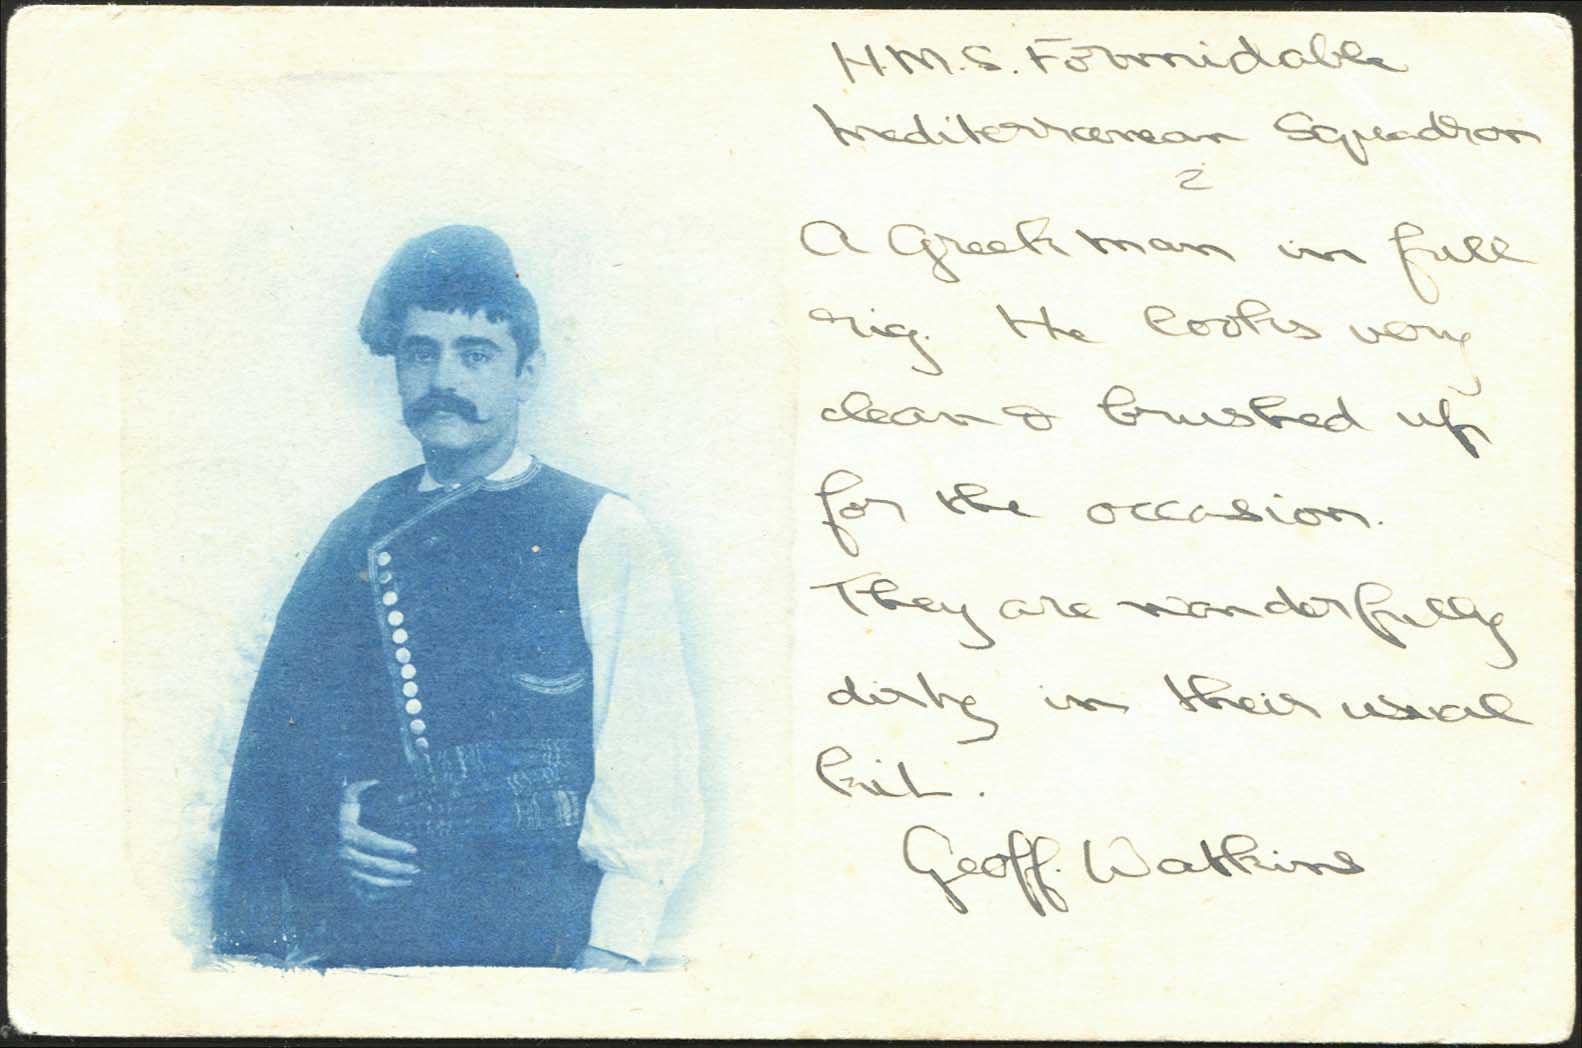 H.M.S. Formidable
Mediterranean Squadron
2
A Greek man in full
rig. He looks very
clean & brushed up
for the occasion.
They are wonderfully
dirty in their usual
kit.
Geoff. Watkins